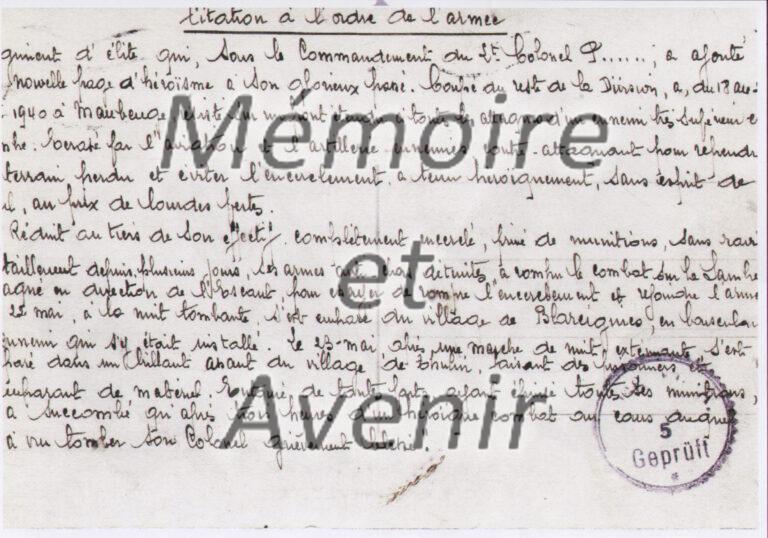 Citation à l'ordre de l'armée
giment d'élite qui, sous le Commandement du Lt Colonel P......, a ajouté
nouvelle page d'héroïsme à son glorieux passé. Comme du reste de la Division, a, du 18 au
1940 à Maubeuge, résisté sur un front étendu à toutes les attaques d'un ennemi très supérieur e
bre. Ecrasé par l'aviation et l'artillerie ennemies contre-attaquant pour reprendre
terrain perdu et éviter l'encerclement, a tenu héroïquement, sans esprit de
l, au prix de lourdes pertes.
Réduit au tiers de son effectif, complètement encerclé, privé de munitions, sans ravi
taillement depuis plusieurs jours, ses armes anti-chars détruites, a rompu le combat sur la Sambre
agné en direction de l'Escaut, pour essayer de rompre l'encerclement et rejoindre l'armé
22 mai, à la nuit tombante s'est emparé du village de en bousculan
ennemi qui s'y était installé. Le 23 mai après une marche de nuit exténuante s'est
paré dans un brillant assaut du village de faisant des prisonniers et
emparant de matériel. de toutes parts, ayant épuisé toutes ses munitions,
a succombé qu'après trois heures d'un héroïque combat au cours duquel
a vu tomber son Colonel grièvement blessé.
Mémoire
et
Avenir
5
Geprüft